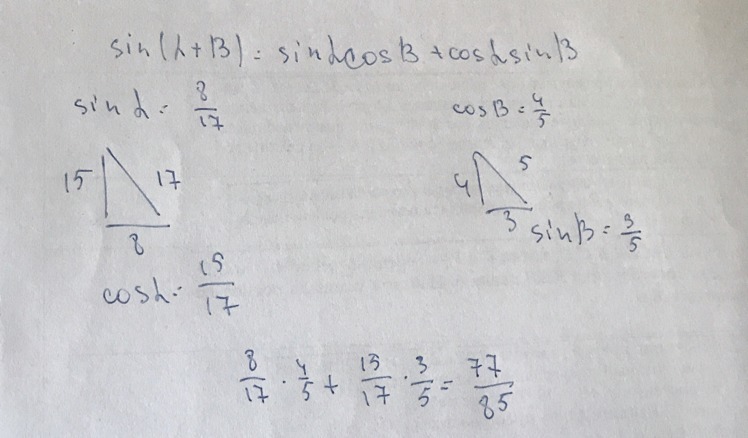 sin(α+β) = sinαcosβ + cosαsinβ
sinα = 8/17
cosβ = 4/5
15 17
8
4 5
3
sinβ = 3/5
cosα = 15/17
8/17 · 4/5 + 15/17 · 3/5 = 77/85